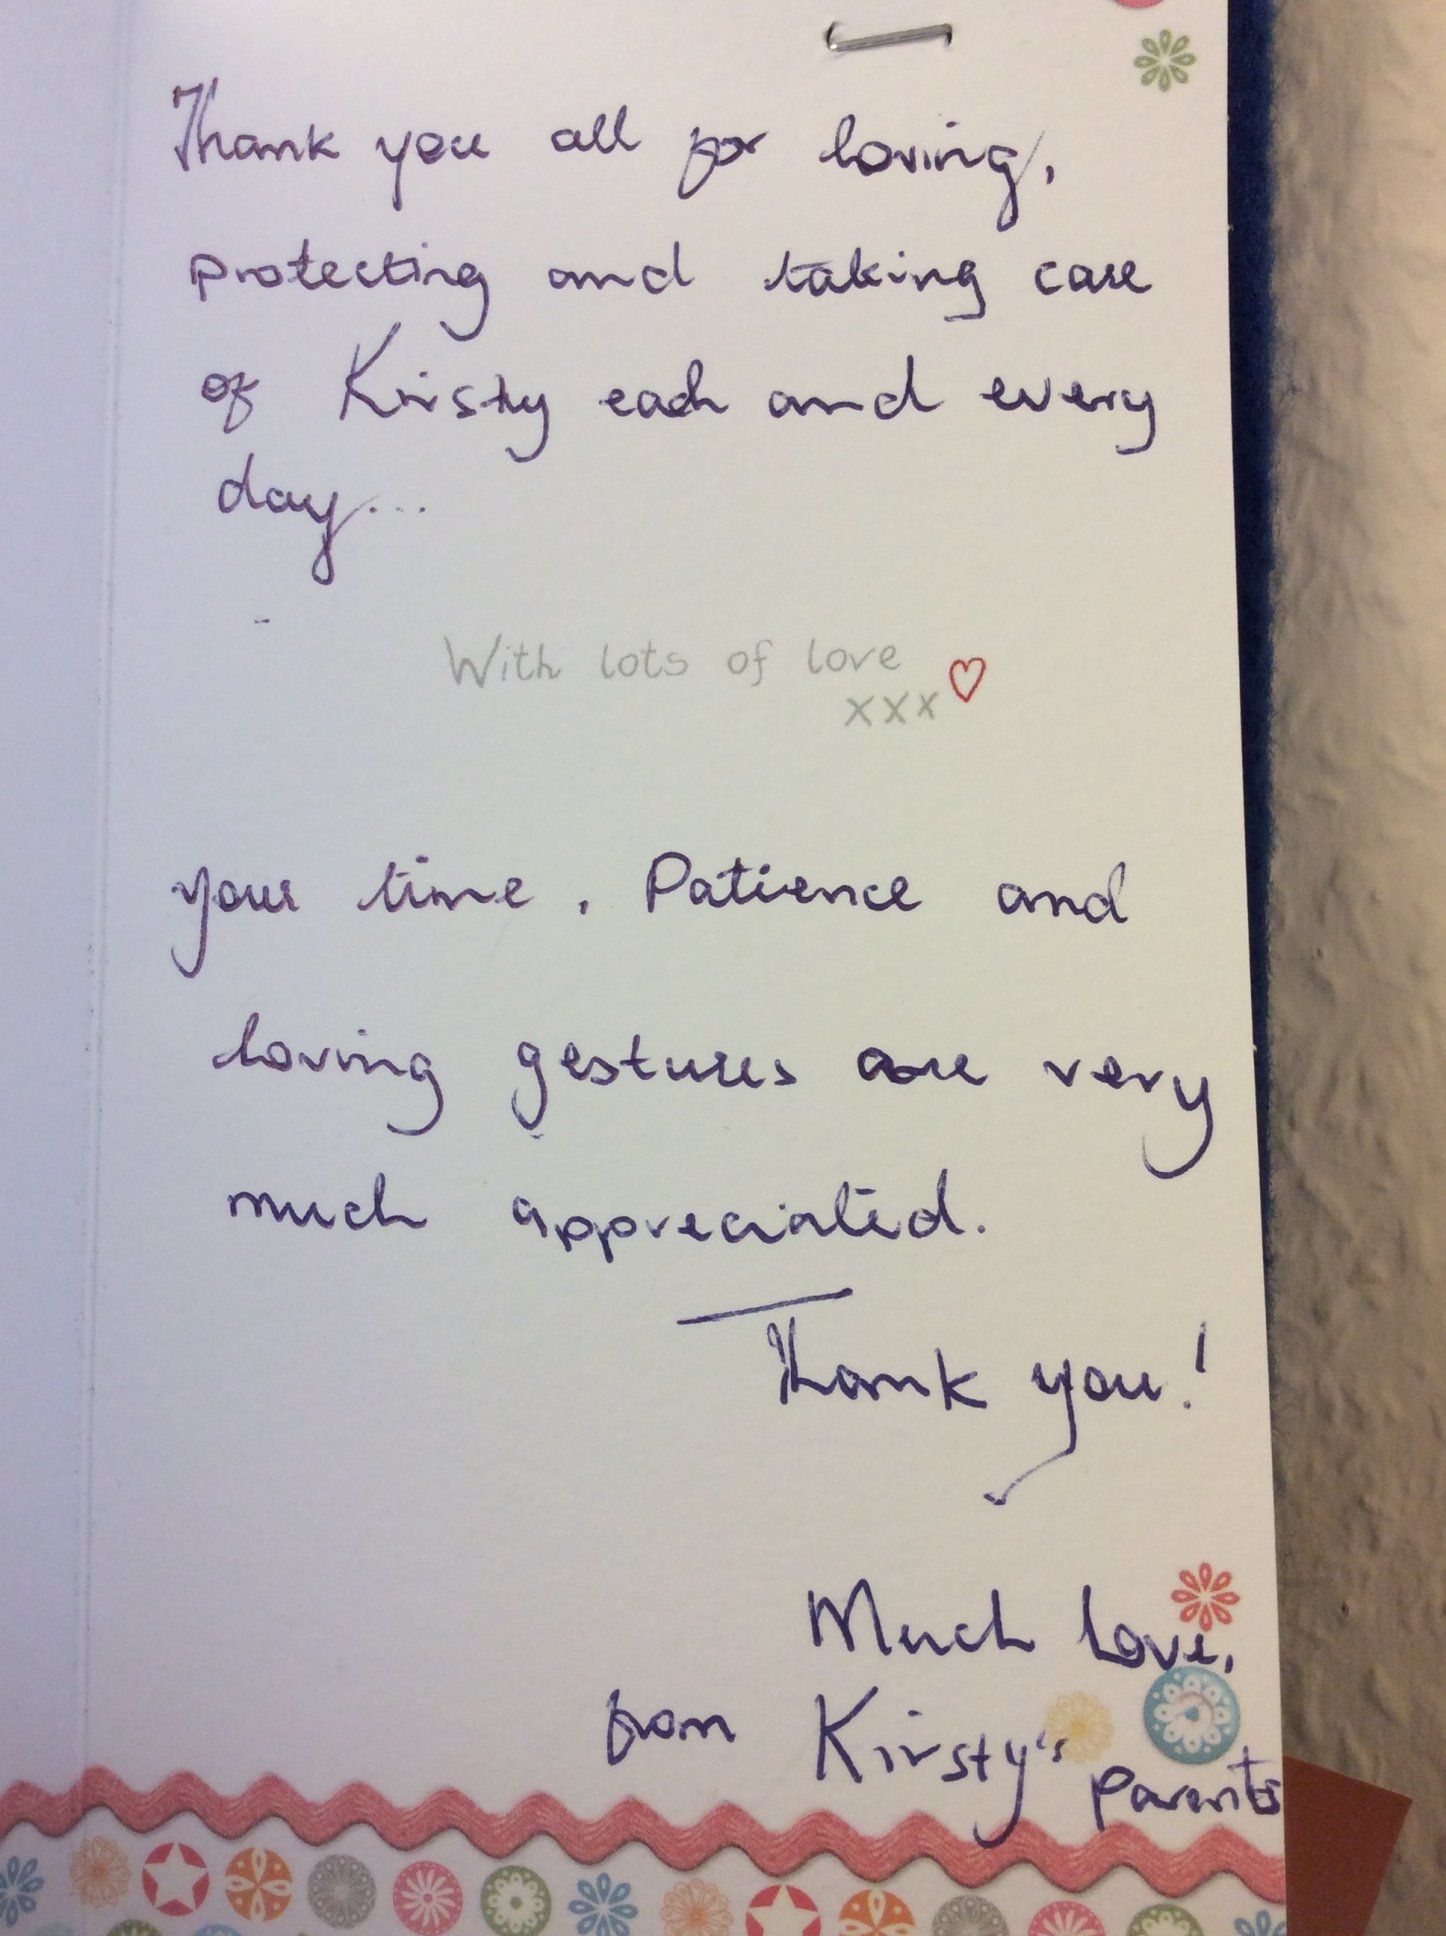 Thank you all for loving,
protecting and taking care
of Kirsty each and every
day...
With lots of love
xxx
your time, Patience and
loving gestures are very
much appreciated.
Thank you!
Much Love,
from Kirsty's parents